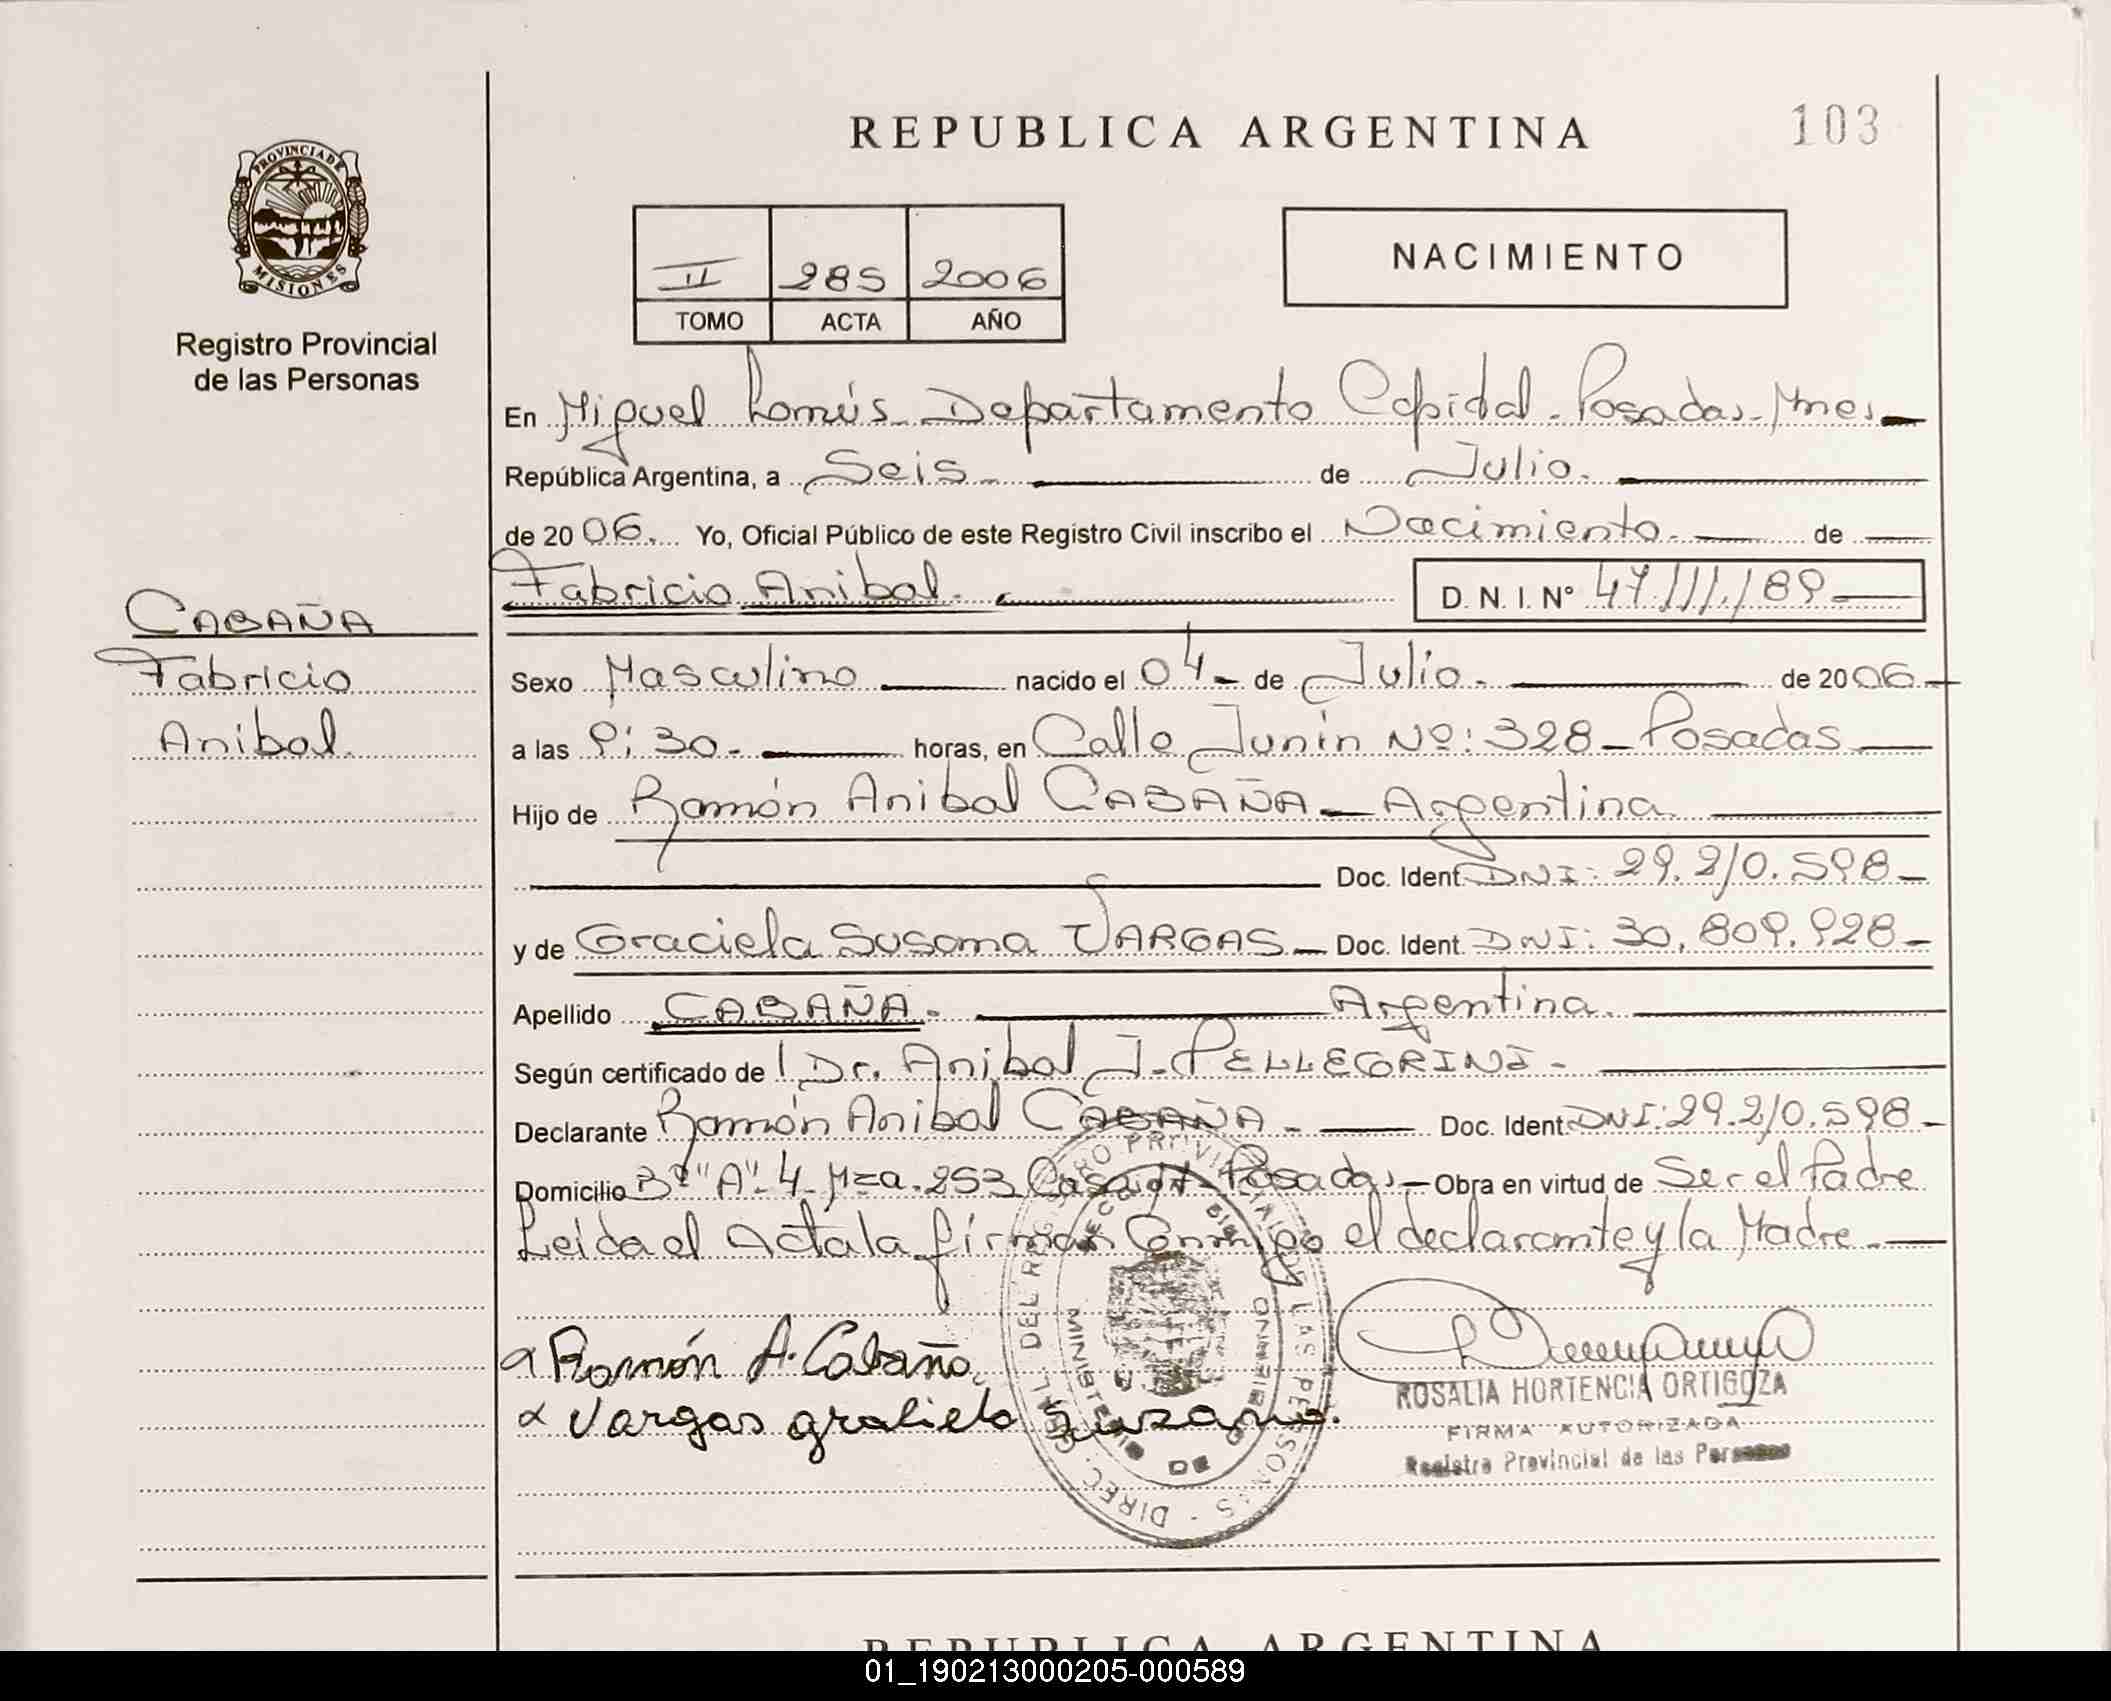 REPUBLICA ARGENTINA
103
PROVINCIA DE
MISIONES
Registro Provincial
de las Personas
II 285 2006
TOMO ACTA AÑO
NACIMIENTO
En Miguel Lanús - Departamento Capital - Posadas - Mnes
República Argentina, a Seis de Julio
de 2006. Yo, Oficial Público de este Registro Civil inscribo el Nacimiento de
Fabricio Anibal. D. N. I. Nº 47.111.189
CABAÑA
Fabricio
Anibal.
Sexo Masculino nacido el 04 de Julio de 2006
a las 9:30 horas, en Calle Junin Nº: 328 - Posadas
Hijo de Ramón Anibal CABAÑA - Argentina
Doc. Ident. DNI: 29.210.598
y de Graciela Susana VARGAS - Doc. Ident. DNI: 30.809.928
Apellido CABAÑA. Argentina.
Según certificado de Dr. Anibal J. PELLEGRINI
Declarante Ramón Anibal CABAÑA - Doc. Ident. DNI: 29.210.598
Domicilio Bº "A"-4 Mza. 253 Casa Posadas - Obra en virtud de Ser el Padre
Leida el Acta la firman Conmigo el declarante y la Madre
Ramón A. Cabaña
Vargas graliela Suzana.
DIREC. GRAL. DEL REGISTRO PROVINCIAL DE LAS PERSONAS
MINISTERIO DE GOBIERNO
ROSALIA HORTENCIA ORTIGOZA
FIRMA AUTORIZADA
Registro Provincial de las Personas
REPUBLICA ARGENTINA
01_190213000205-000589